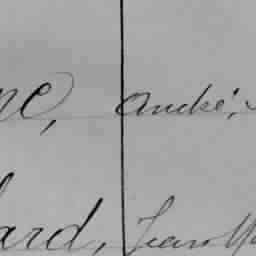 ne, André,
ard, Jean M